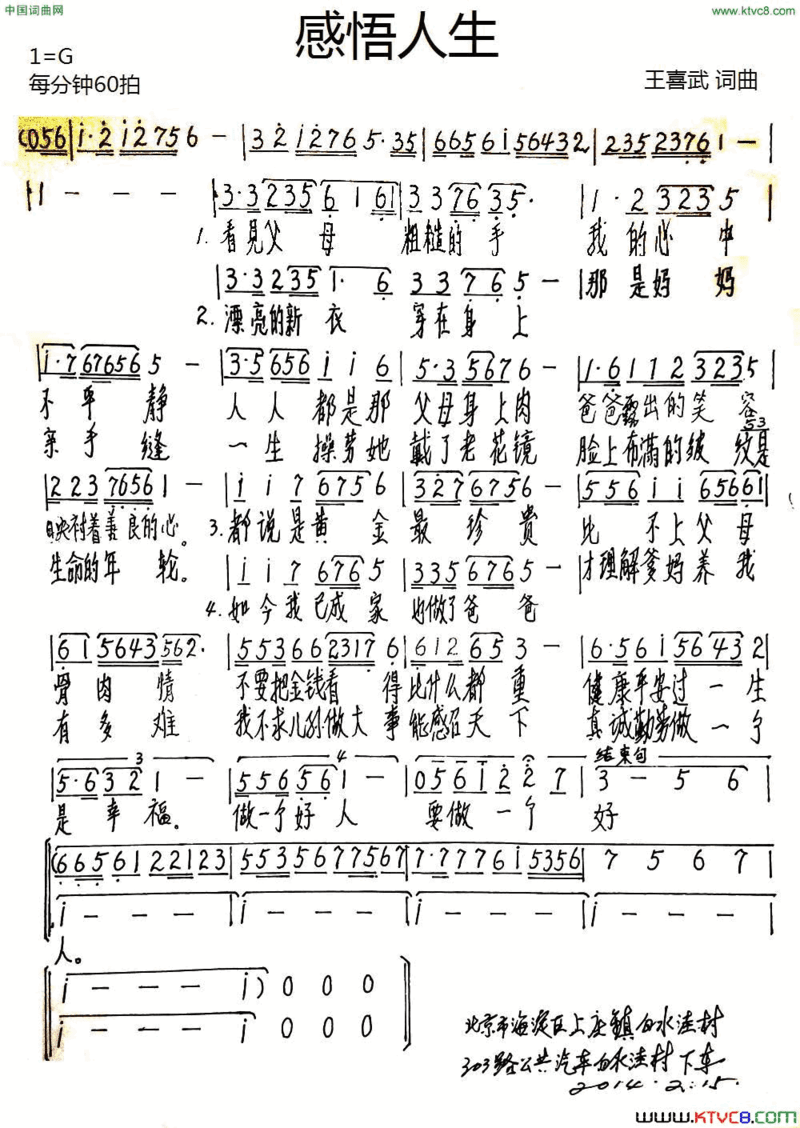 中国词曲网
http://
www.ktvc8.com
感悟人生
1=G
每分钟60拍
王喜武 词曲
1. 看見父母 粗糙的手 我的心中
那是妈妈
2. 漂亮的新衣 穿在身上
不平静 人人都是那 父母身上肉 爸爸露出的笑容
亲手缝 一生操劳她 戴了老花镜 脸上布满的皱纹是
映衬着善良的心。 3. 都说是黄金 最珍贵 比不上父母
生命的年轮。 才理解爹妈养我
4. 如今我已成家 也做了爸爸
骨肉情 不要把金钱看得 比什么都重 健康平安过一生
有多难 我不求儿孙做大事 能感召天下 真诚勤劳做一个
结束句
是幸福。 做一个好人 要做一个 好
人。
北京市海淀区上庄镇白水洼村
303路公共汽车白水洼村下车
2014.2.15.
www.KTVC8.com